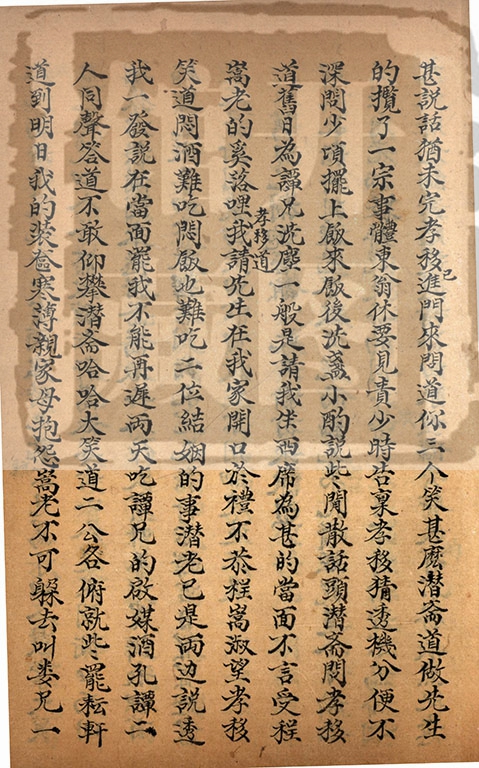 甚說話猶未完孝移已進門來問道你三个笑甚麽潛斋道做先生
的攬了一宗事體東翁休要見責少時告稟孝移猜透機分便不
深問少項擺上飯來飯後洗盞小酌說些閒散話頭潛斋問孝移
道舊日為譚兄洗塵一般是請我坐西席為甚的當面不言受程
嵩老的奚落哩孝移道我請先生在我家開口於禮不恭程嵩淑望孝移
笑道悶酒難吃悶飯也難吃二位結姻的事潛老已是兩边說透
我一發說在當面罷我不能再遲両天吃譚兄的啟媒酒孔譚二
人同聲答道不敢仰攀潛斋哈哈大笑道二公各俯就些罷耘軒
道到明日我的裝奩寒薄親家母抱怨嵩老不可躱去叫娄兄一